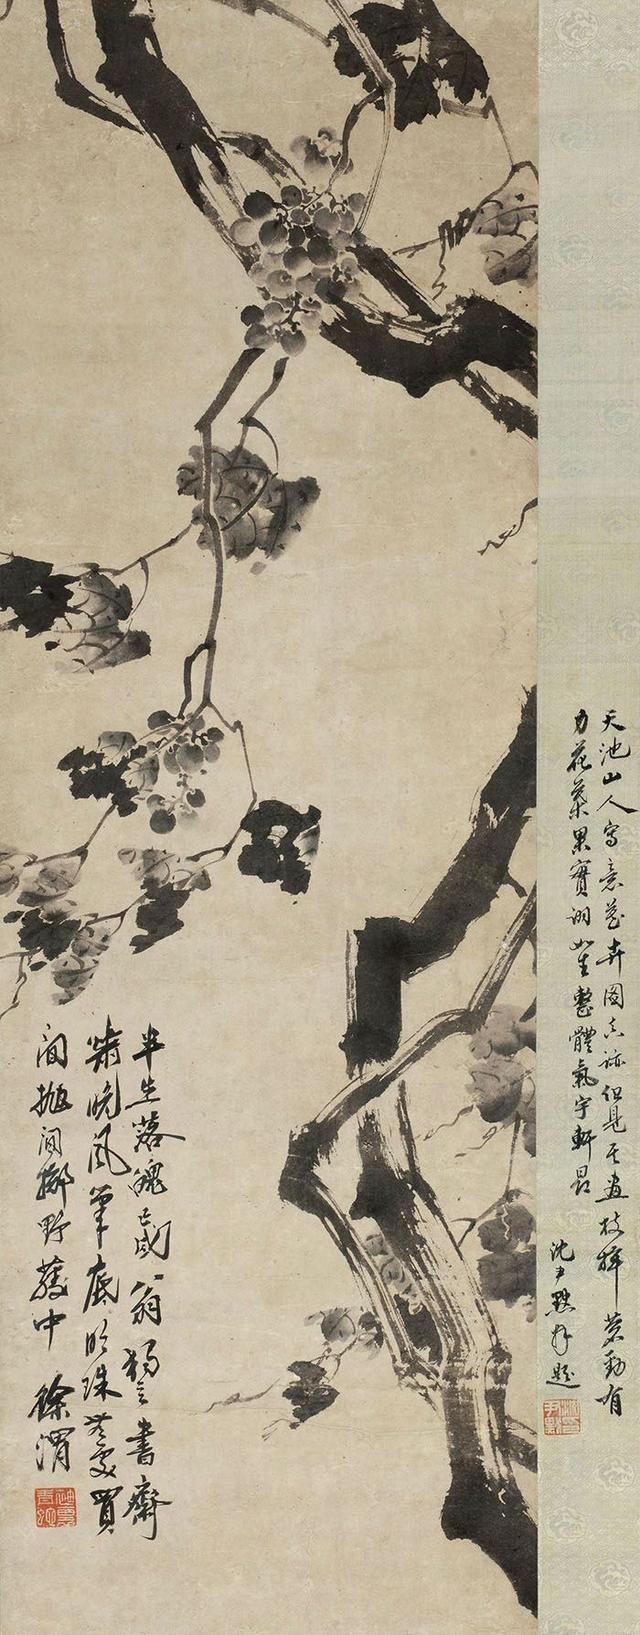 天池山人寫意花卉圖真跡但見其畫枝幹蒼勁有
力花葉果實栩如生整體氣宇軒昂 沈尹默題
半生落魄已成翁獨立書齋
嘯晚風筆底明珠無處買
閒拋閒擲野藤中 徐渭